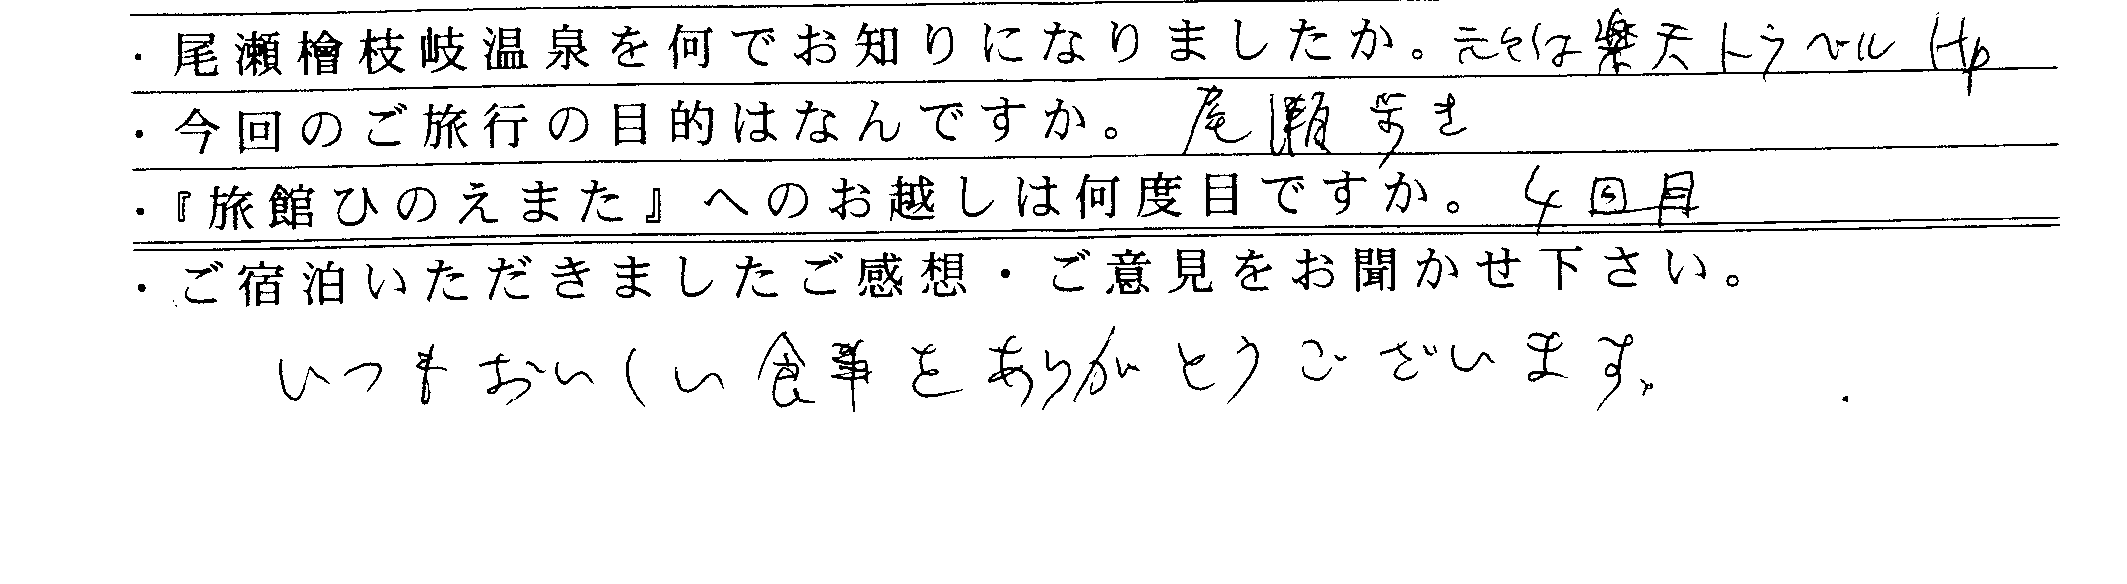 ・尾瀬檜枝岐温泉を何でお知りになりましたか。元々は楽天トラベル Hp
・今回のご旅行の目的はなんですか。 尾瀬歩き
・『旅館ひのえまた』へのお越しは何度目ですか。 4回目
・ご宿泊いただきましたご感想・ご意見をお聞かせ下さい。
いつもおいしい食事をありがとうございます。